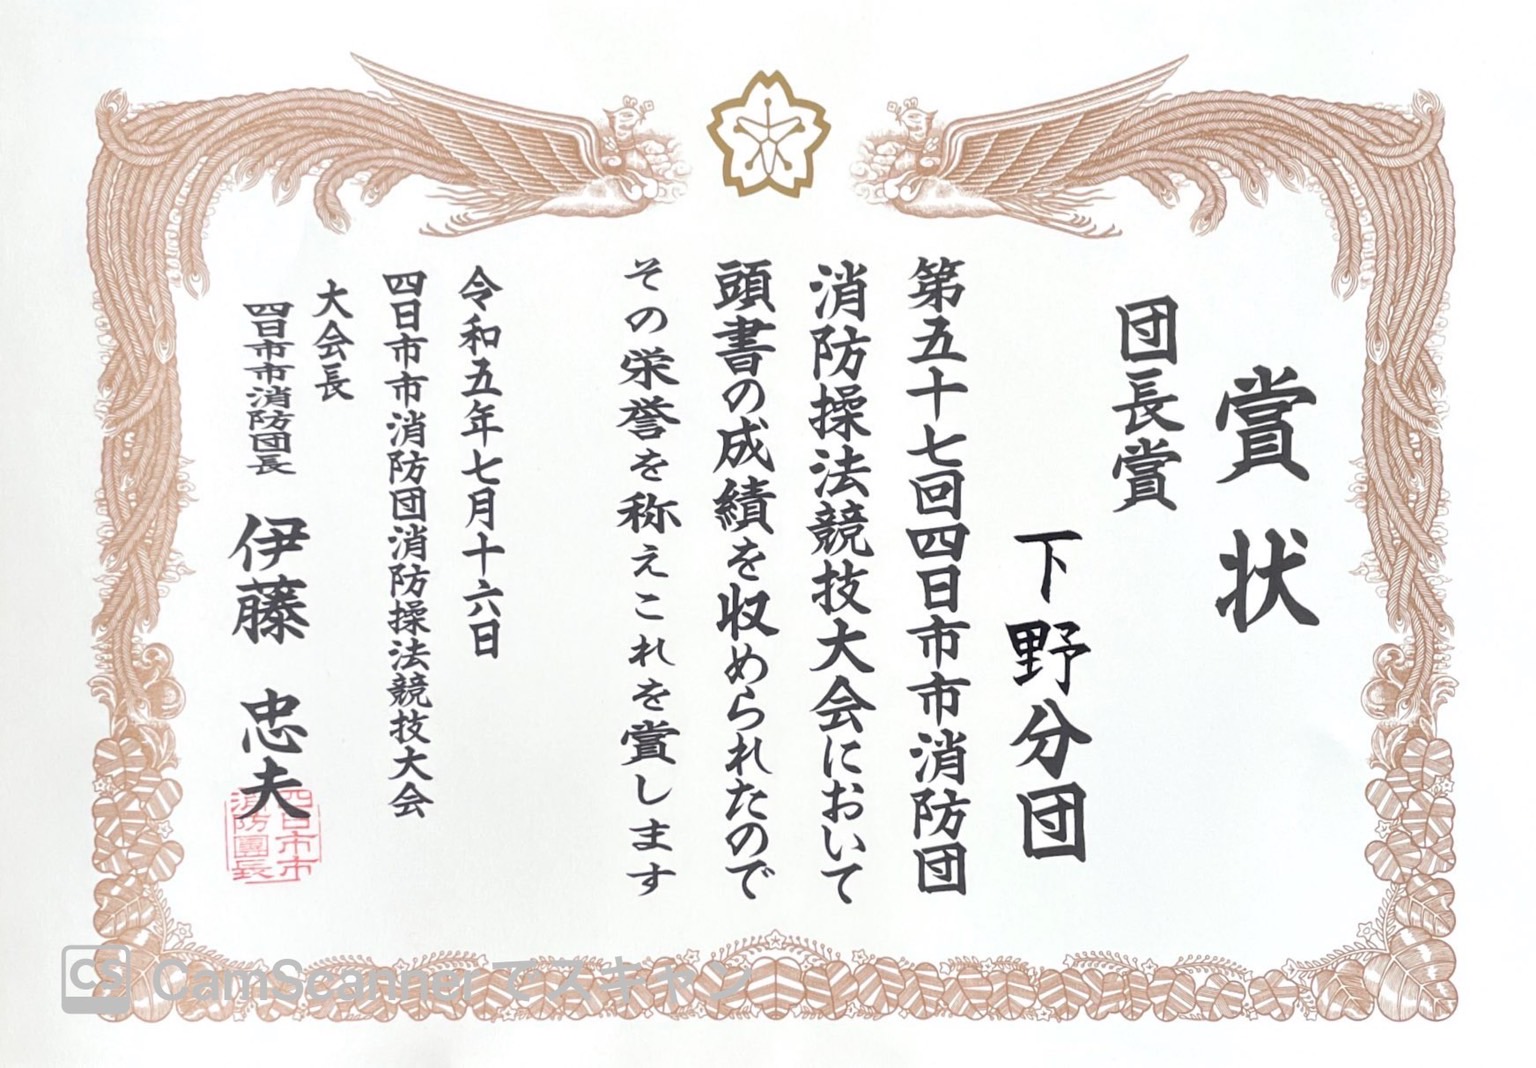 賞状
団長賞
下野分団
第五十七回四日市市消防団
消防操法競技大会において
頭書の成績を収められたので
その栄誉を称えこれを賞します
令和五年七月十六日
四日市市消防団消防操法競技大会
大会長
四日市市消防団長 伊藤 忠夫
四日市市
消防團長
CS CamScanner でスキャン